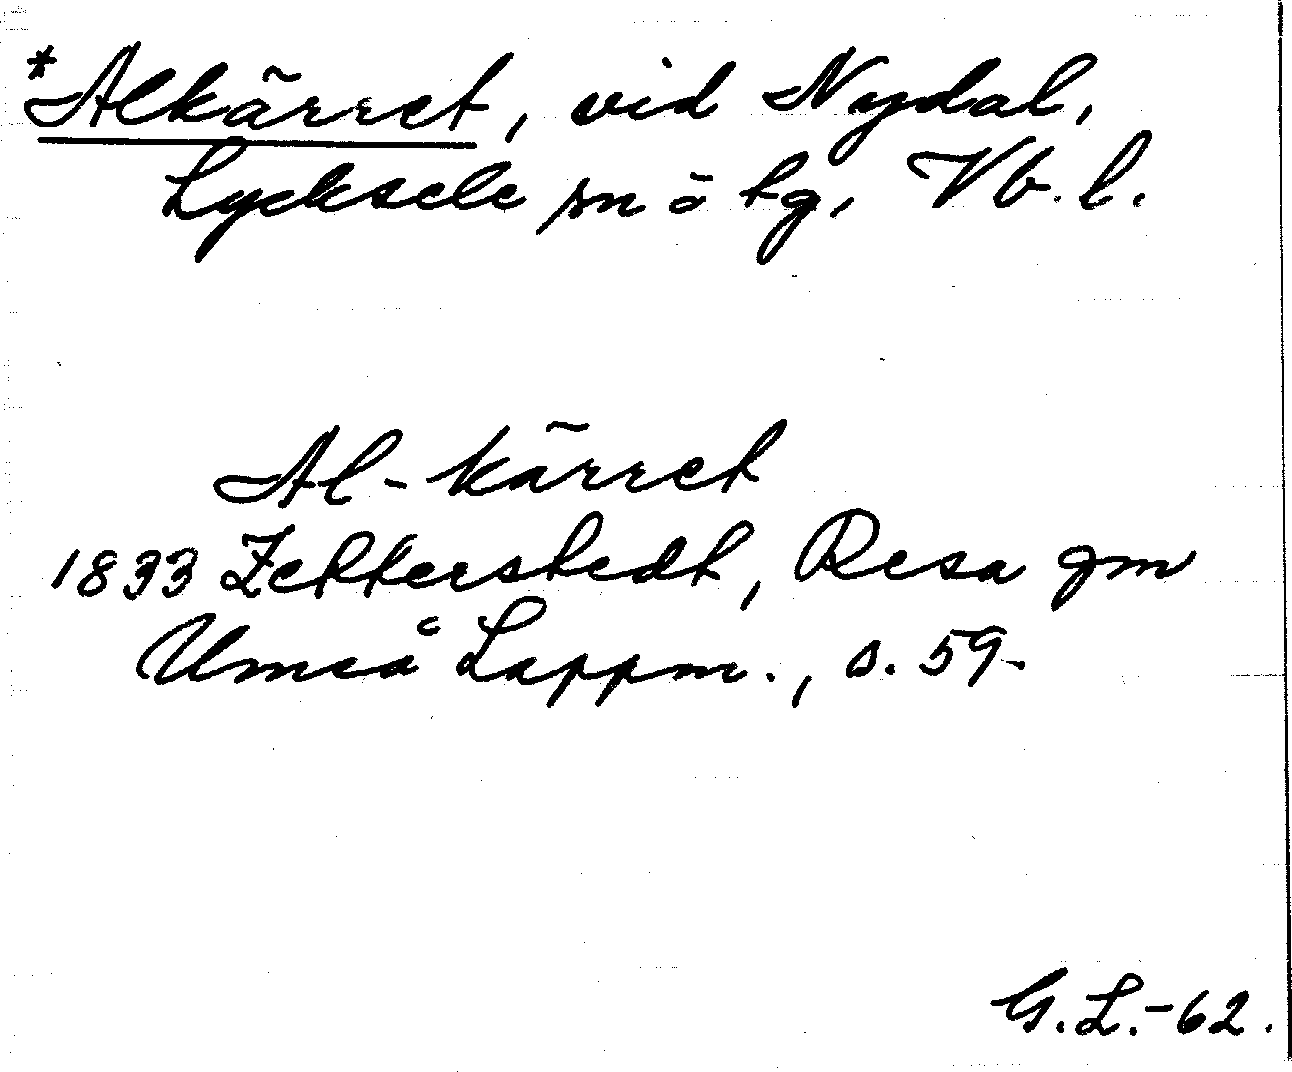 *Alkärret, vid Nydal,
Lycksele sn ö tg, Vb. l.
Al-kärret
1833 Zetterstedt, Resa gm
Umeå Lappm., s. 59.
G.L.-62.